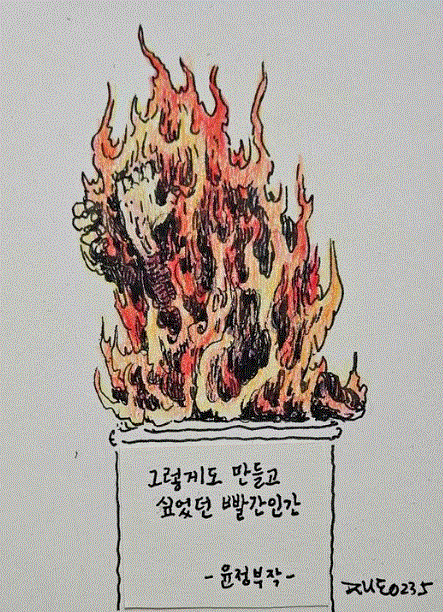 그렇게도 만들고
싶었던 빨간인간
-윤정부작-
0235